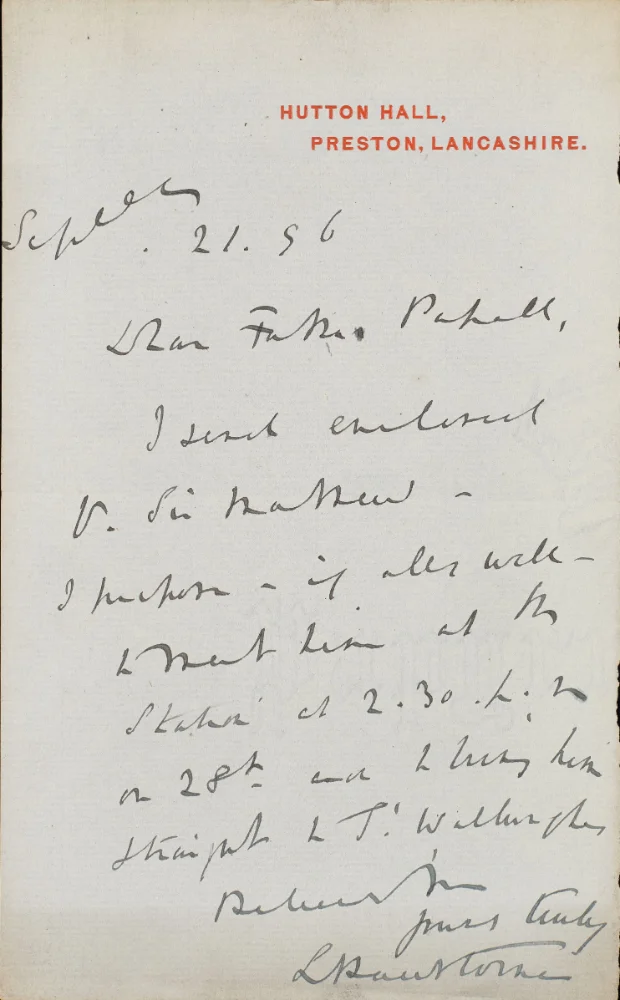 HUTTON HALL,
PRESTON, LANCASHIRE.
Septber . 21. 96
Dear Father Pahall,
I send enclosed
fr. Sir Mathew -
I purpose - if alls well -
to meet him at the
Station at 2.30 p.m
on 28th and to bring him
straight to St. Walburghs
Believe me
yours truly
L Rawstorne